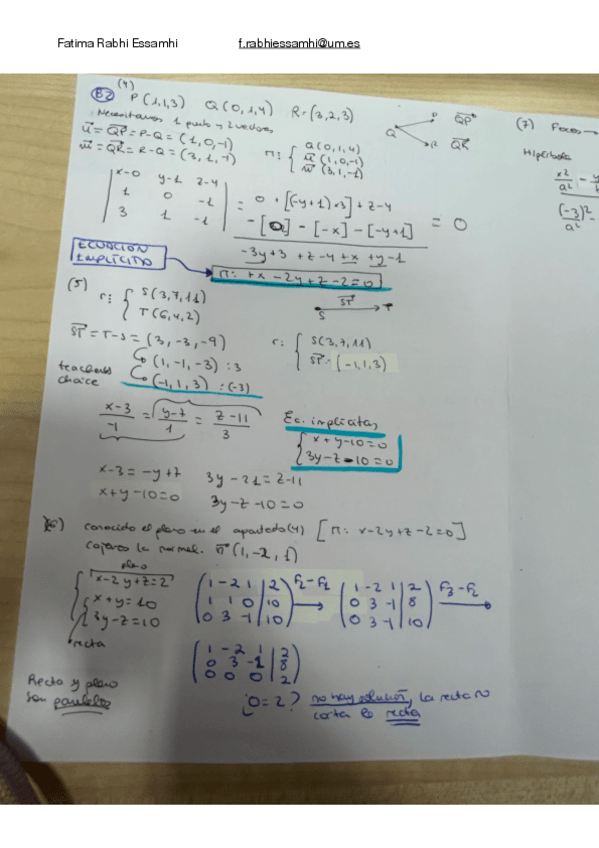 Fatima Rabhi Essamhi f.rabhiessamhi@um.es
B2
(4) P(1,1,3) Q(0,1,4) R=(3,2,3)
Necesitamos 1 punto y 2 vectores
u = QP = P-Q = (1,0,-1)
w = QR = R-Q = (3,1,-1)
π: { Q(0,1,4)
u(1,0,-1)
w(3,1,-1)
Q P QP
R QR
| x-0 y-1 z-4 |
| 1 0 -1 |
| 3 1 -1 |
= 0 + [(-y+1)·3] + z-4
- [0] - [-x] - [-y+1] = 0
-3y+3 + z-4 + x + y-1
ECUACIÓN
IMPLÍCITA
π: +x -2y+z-2=0
(5) r: { S(3,7,11)
T(6,4,2)
ST
S T
ST = T-S = (3,-3,-9)
(1,-1,-3) :3
teachers choice (-1,1,3) :(-3)
r: { S(3,7,11)
ST= (-1,1,3)
x-3/-1 = y-7/1 = z-11/3
Ec. implícitas
{ x+y-10=0
3y-z-10=0
x-3=-y+7 3y-21=z-11
x+y-10=0 3y-z-10=0
(6) conocido el plano en el apartado (4) [π: x-2y+z-2=0]
cojemos la normal. n(1,-2,1)
plano
{ x-2y+z=2
{ x+y=10
3y-z=10
recta
(1 -2 1 | 2
1 1 0 | 10
0 3 -1 | 10)
F2-F1
(1 -2 1 | 2
0 3 -1 | 8
0 3 -1 | 10)
F3-F2
(1 -2 1 | 2
0 3 -1 | 8
0 0 0 | 2)
¿0=2? no hay solución, la recta no
corta la recta
Recta y plano
son paralelos
(7) Focos →
Hipérbola
x²/a² - y
(-3)²/a² -